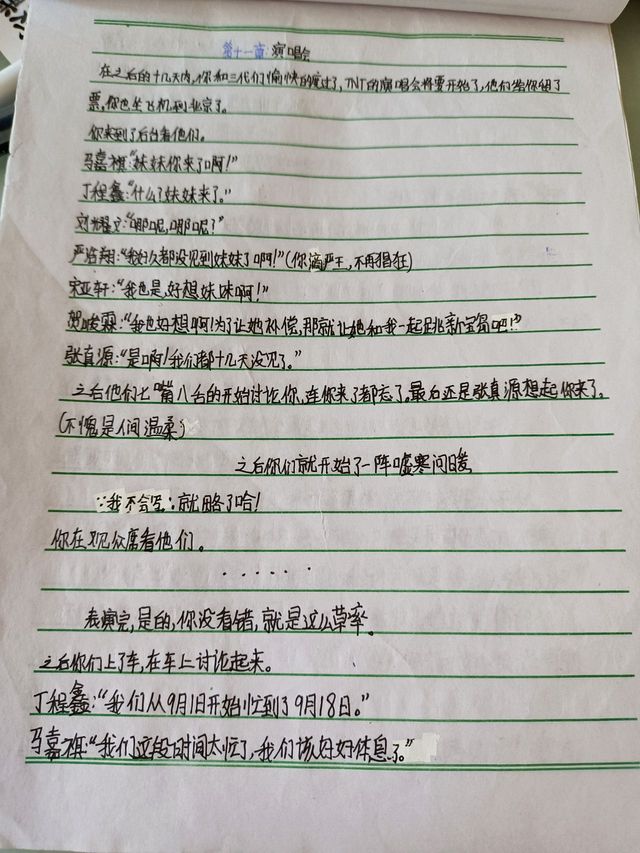 第十一章 演唱会
在之后的十几天内,你和三代们愉快的度过了,TNT的演唱会将要开始了,他们给你留了
票,你也坐飞机到北京了。
你来到了后台看他们。
马嘉祺:“妹妹你来了啊!”
丁程鑫:“什么了妹妹来了。”
刘耀文:“哪呢,哪呢?”
严浩翔:“我好久都没见到妹妹了啊!”(你滴严王,不再猖狂)
宋亚轩:“我也是,好想妹妹啊!”
贺峻霖:“我也好想啊!为了让她补偿,那就让她和我一起跳新宝岛吧!”
张真源:“是啊!我们都十几天没见了。”
之后他们七嘴八舌的开始讨论你,连你来了都忘了。最后还是张真源想起你来了。
(不愧是人间温柔)
之后你们就开始了一阵嘘寒问暖
∵我不会写∴就略了哈!
你在观众席看他们。
······
表演完,是的,你没看错,就是这么草率。
之后你们上了车,在车上讨论起来。
丁程鑫:“我们从9月1日开始忙到了9月18日。”
马嘉祺:“我们这段时间太忙了,我们该好好休息了。”